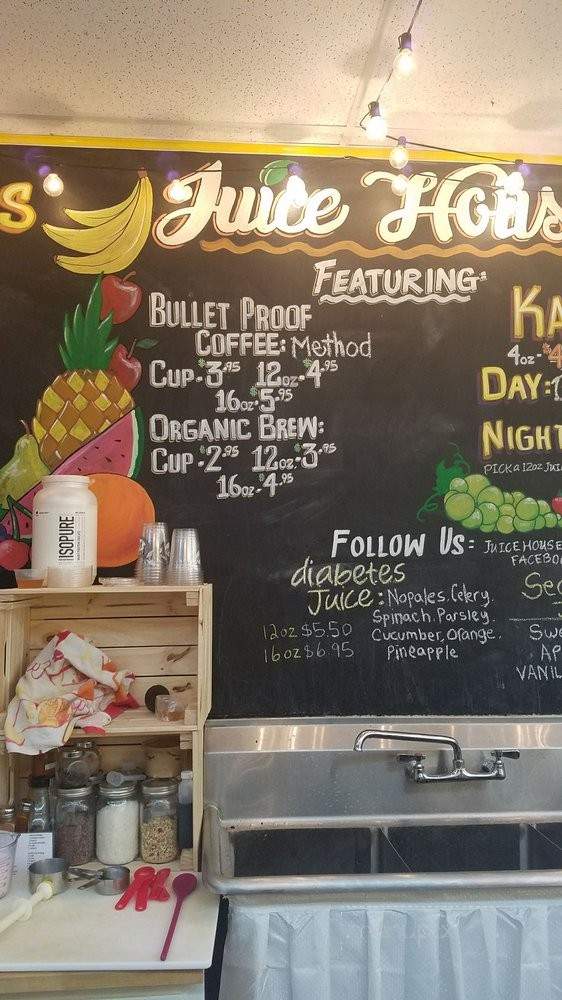 S
Juice Hous
FEATURING:
BULLET PROOF
COFFEE: Method
CUP-$3.95 12oz-$4.95
16oz-$5.95
ORGANIC BREW:
CUP-$2.95 12oz-$3.95
16oz-$4.95
KA
4oz-$4
DAY:
NIGHT
PICK a 12oz JUIC
FOLLOW US: JUICEHOUSE
FACEBO
diabetes
Juice: Nopales, Celery,
Spinach, Parsley,
12oz $5.50 Cucumber, Orange,
16oz $6.95 Pineapple
Sea
Swe
AP
VANIL
ISOPURE